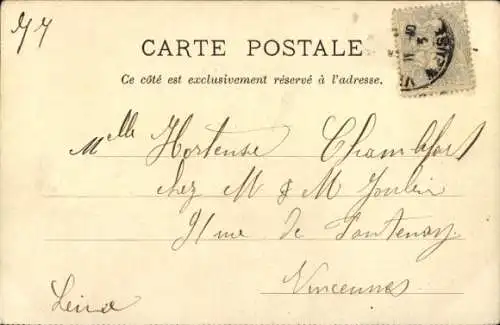 CARTE POSTALE
Ce côté est exclusivement réservé à l'adresse.
Melle Hortense Chambfort
chez M & M Joulin
rue de Fontenay
Vincennes
Seine